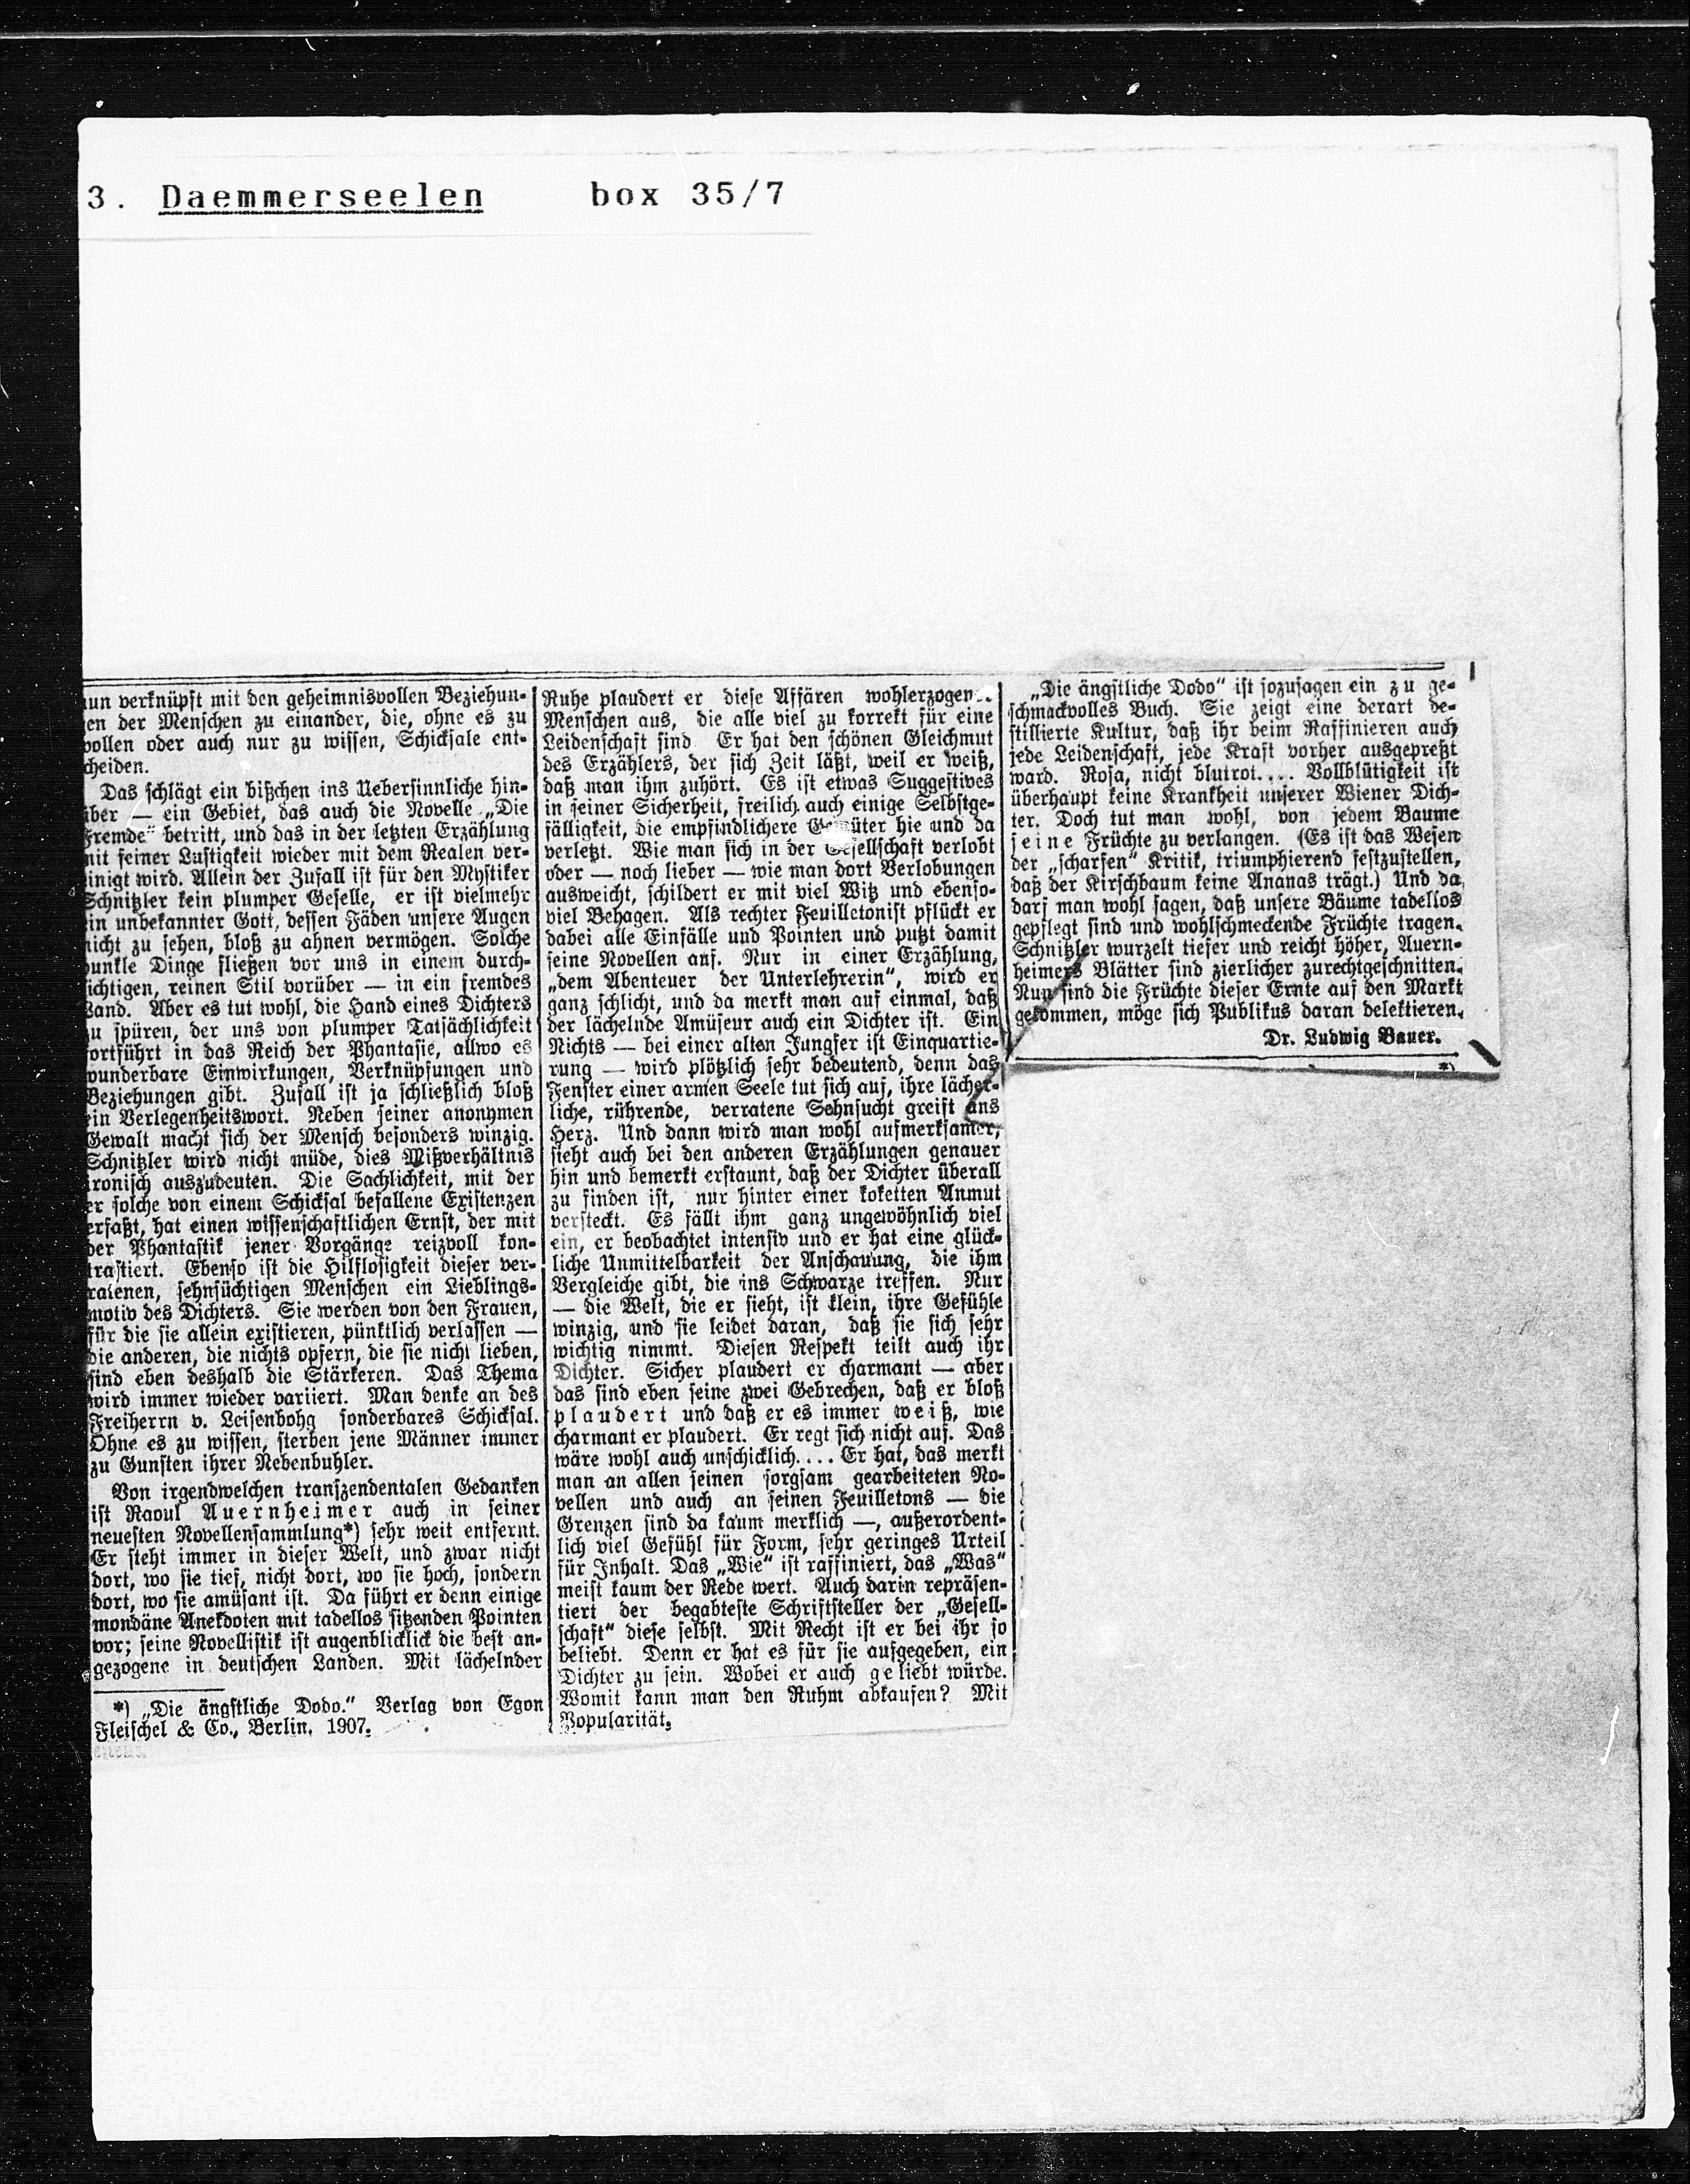 3. Daemmerseelen box 35/7
nun verknüpft mit den geheimnisvollen Beziehun-
en der Menschen zu einander, die, ohne es zu
wollen oder auch nur zu wissen, Schicksale ent-
cheiden.
Das schlägt ein bißchen ins Uebersinnliche hin-
über — ein Gebiet, das auch die Novelle „Die
Fremde“ betritt, und das in der letzten Erzählung
mit feiner Lustigkeit wieder mit dem Realen ver-
einigt wird. Allein der Zufall ist für den Mystiker
Schnitzler kein plumper Geselle, er ist vielmehr
ein unbekannter Gott, dessen Fäden unsere Augen
nicht zu sehen, bloß zu ahnen vermögen. Solche
dunkle Dinge fließen vor uns in einem durch-
ichtigen, reinen Stil vorüber — in ein fremdes
Land. Aber es tut wohl, die Hand eines Dichters
zu spüren, der uns von plumper Tatsächlichkeit
fortführt in das Reich der Phantasie, allwo es
wunderbare Einwirkungen, Verknüpfungen und
Beziehungen gibt. Zufall ist ja schließlich bloß
ein Verlegenheitswort. Neben seiner anonymen
Gewalt macht sich der Mensch besonders winzig.
Schnitzler wird nicht müde, dies Mißverhältnis
ironisch auszudeuten. Die Sachlichkeit, mit der
er solche von einem Schicksal befallene Existenzen
erfaßt, hat einen wissenschaftlichen Ernst, der mit
der Phantastik jener Vorgänge reizvoll kon-
trastiert. Ebenso ist die Hilflosigkeit dieser ver-
ratenen, sehnsüchtigen Menschen ein Lieblings-
motiv des Dichters. Sie werden von den Frauen,
für die sie allein existieren, pünktlich verlassen —
die anderen, die nichts opfern, die sie nicht lieben,
sind eben deshalb die Stärkeren. Das Thema
wird immer wieder variiert. Man denke an des
Freiherrn v. Leisenbohg sonderbares Schicksal.
Ohne es zu wissen, sterben jene Männer immer
zu Gunsten ihrer Nebenbuhler.
Von irgendwelchen transzendentalen Gedanken
ist Raoul Auernheimer auch in seiner
neuesten Novellensammlung*) sehr weit entfernt.
Er steht immer in dieser Welt, und zwar nicht
dort, wo sie tief, nicht dort, wo sie hoch, sondern
dort, wo sie amüsant ist. Da führt er denn einige
mondäne Anekdoten mit tadellos sitzenden Pointen
vor; seine Novellistik ist augenblicklick die best an-
gezogene in deutschen Landen. Mit lächelnder
*) „Die ängstliche Dodo.“ Verlag von Egon
Fleischel & Co., Berlin. 1907.
Ruhe plaudert er diese Affären wohlerzogen..
Menschen aus, die alle viel zu korrekt für eine
Leidenschaft sind. Er hat den schönen Gleichmut
des Erzählers, der sich Zeit läßt, weil er weiß,
daß man ihm zuhört. Es ist etwas Suggestives
in seiner Sicherheit, freilich auch einige Selbstge-
fälligkeit, die empfindlichere Gemüter hie und da
verletzt. Wie man sich in der Gesellschaft verlobt
oder — noch lieber — wie man dort Verlobungen
ausweicht, schildert er mit viel Witz und ebenso-
viel Behagen. Als rechter Feuilletonist pflückt er
dabei alle Einfälle und Pointen und putzt damit
seine Novellen auf. Nur in einer Erzählung,
„dem Abenteuer der Unterlehrerin“, wird er
ganz schlicht, und da merkt man auf einmal, daß
der lächelnde Amüseur auch ein Dichter ist. Ein
Nichts — bei einer alten Jungfer ist Einquartie-
rung — wird plötzlich sehr bedeutend, denn das
Fenster einer armen Seele tut sich auf, ihre lächer-
liche, rührende, verratene Sehnsucht greift ans
Herz. Und dann wird man wohl aufmerksamer,
sieht auch bei den anderen Erzählungen genauer
hin und bemerkt erstaunt, daß der Dichter überall
zu finden ist, nur hinter einer koketten Anmut
versteckt. Es fällt ihm ganz ungewöhnlich viel
ein, er beobachtet intensiv und er hat eine glück-
liche Unmittelbarkeit der Anschauung, die ihm
Vergleiche gibt, die ins Schwarze treffen. Nur
— die Welt, die er sieht, ist klein, ihre Gefühle
winzig, und sie leidet daran, daß sie sich sehr
wichtig nimmt. Diesen Respekt teilt auch ihr
Dichter. Sicher plaudert er charmant — aber
das sind eben seine zwei Gebrechen, daß er bloß
plaudert und daß er es immer weiß, wie
charmant er plaudert. Er regt sich nicht auf. Das
wäre wohl auch unschicklich.... Er hat, das merkt
man an allen seinen sorgsam gearbeiteten No-
vellen und auch an seinen Feuilletons — die
Grenzen sind da kaum merklich —, außerordent-
lich viel Gefühl für Form, sehr geringes Urteil
für Inhalt. Das „Wie“ ist raffiniert, das „Was“
meist kaum der Rede wert. Auch darin repräsen-
tiert der begabteste Schriftsteller der „Gesell-
schaft“ diese selbst. Mit Recht ist er bei ihr so
beliebt. Denn er hat es für sie aufgegeben, ein
Dichter zu sein. Wobei er auch geliebt würde.
Womit kann man den Ruhm abkaufen? Mit
Popularität.
„Die ängstliche Dodo“ ist sozusagen ein zu ge-
schmackvolles Buch. Sie zeigt eine derart de-
stillierte Kultur, daß ihr beim Raffinieren auch
jede Leidenschaft, jede Kraft vorher ausgepreßt
ward. Rosa, nicht blutrot.... Vollblütigkeit ist
überhaupt keine Krankheit unserer Wiener Dich-
ter. Doch tut man wohl, von jedem Baume
seine Früchte zu verlangen. (Es ist das Wesen
der „scharfen“ Kritik, triumphierend festzustellen,
daß der Kirschbaum keine Ananas trägt.) Und da
darf man wohl sagen, daß unsere Bäume tadellos
gepflegt sind und wohlschmeckende Früchte tragen.
Schnitzler wurzelt tiefer und reicht höher, Auern-
heimers Blätter sind zierlicher zurechtgeschnitten.
Nun sind die Früchte dieser Ernte auf den Markt
gekommen, möge sich Publikus daran delektieren.
Dr. Ludwig Bauer.
*)